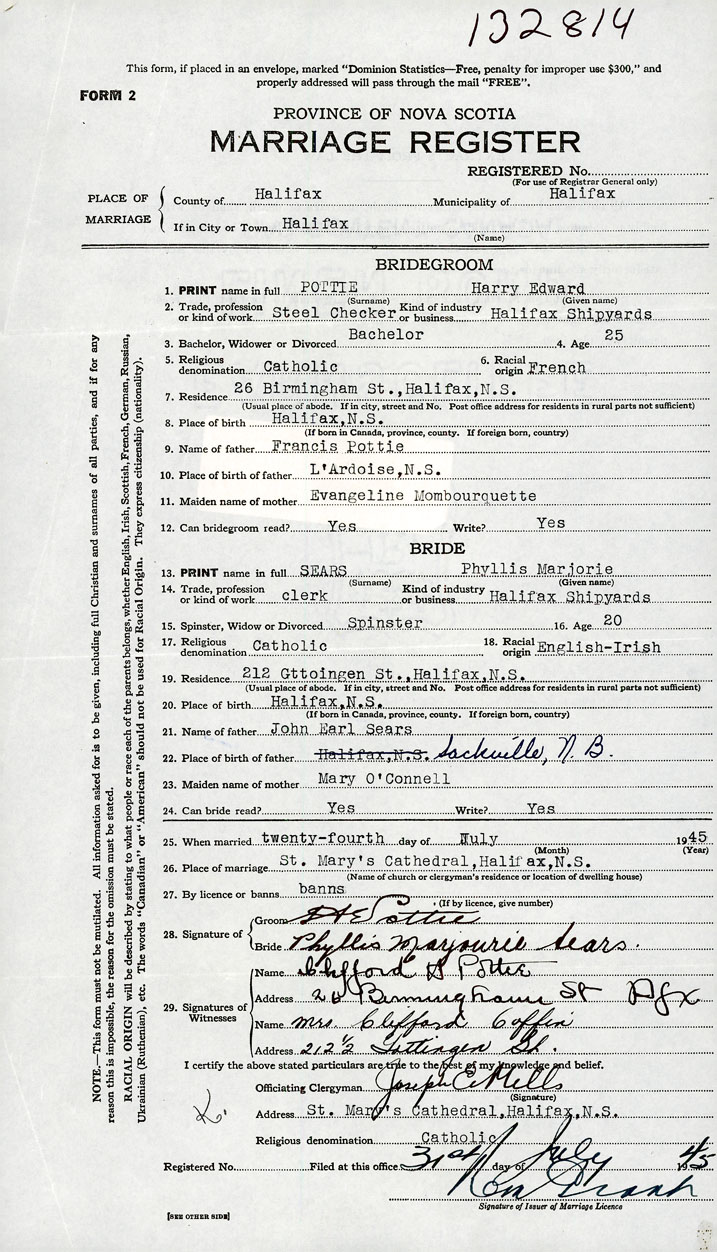 132814
This form, if placed in an envelope, marked "Dominion Statistics—Free, penalty for improper use $300," and
properly addressed will pass through the mail "FREE".
FORM 2
PROVINCE OF NOVA SCOTIA
MARRIAGE REGISTER
REGISTERED No.
(For use of Registrar General only)
PLACE OF MARRIAGE
County of Halifax Municipality of Halifax
If in City or Town Halifax
(Name)
BRIDEGROOM
1. PRINT name in full POTTIE Harry Edward
(Surname) (Given name)
2. Trade, profession or kind of work Steel Checker Kind of industry or business Halifax Shipyards
3. Bachelor, Widower or Divorced Bachelor 4. Age 25
5. Religious denomination Catholic 6. Racial origin French
7. Residence 26 Birmingham St.,Halifax,N.S.
(Usual place of abode. If in city, street and No. Post office address for residents in rural parts not sufficient)
8. Place of birth Halifax,N.S.
(If born in Canada, province, county. If foreign born, country)
9. Name of father Francis Pottie
10. Place of birth of father L'Ardoise,N.S.
11. Maiden name of mother Evangeline Mombourquette
12. Can bridegroom read? Yes Write? Yes
BRIDE
13. PRINT name in full SEARS Phyllis Marjorie
(Surname) (Given name)
14. Trade, profession or kind of work clerk Kind of industry or business Halifax Shipyards
15. Spinster, Widow or Divorced Spinster 16. Age 20
17. Religious denomination Catholic 18. Racial origin English-Irish
19. Residence 212 Gttoingen St.,Halifax,N.S.
(Usual place of abode. If in city, street and No. Post office address for residents in rural parts not sufficient)
20. Place of birth Halifax,N.S.
(If born in Canada, province, county. If foreign born, country)
21. Name of father John Earl Sears
22. Place of birth of father Halifax,N.S. Sackville, N.B.
23. Maiden name of mother Mary O'Connell
24. Can bride read? Yes Write? Yes
25. When married twenty-fourth day of July 1945
(Month) (Year)
26. Place of marriage St. Mary's Cathedral,Halifax,N.S.
(Name of church or clergyman's residence or location of dwelling house)
27. By licence or banns banns
(If by licence, give number)
28. Signature of
Groom H E Pottie
Bride Phyllis Marjourie Sears.
29. Signatures of Witnesses
Name Clifford Pottie
Address 26 Birmingham St Hfx
Name Mrs Clifford Coffin
Address 212½ Gottingen St.
I certify the above stated particulars are true to the best of my knowledge and belief.
Officiating Clergyman Joseph E Mills
(Signature)
Address St. Mary's Cathedral,Halifax,N.S.
Religious denomination Catholic
Registered No. Filed at this office 31st day of July 1945
Signature of Issuer of Marriage Licence
[SEE OTHER SIDE]
NOTE.—This form must not be mutilated. All information asked for is to be given, including full Christian and surnames of all parties, and if for any
reason this is impossible, the reason for the omission must be stated.
RACIAL ORIGIN will be described by stating to what people or race each of the parents belongs, whether English, Irish, Scottish, French, German, Russian,
Ukrainian (Ruthenian), etc. The words "Canadian" or "American" should not be used for Racial Origin. They express citizenship (nationality).